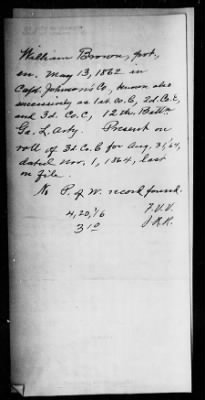 William Brown, pvt.,
en. May 13, 1862 in
Capt. Johnson's Co., known also
successively as 1st. Co. C, 2d. Co. C,
and 3d. Co. C, 12th. Batt'n
Ga. L. Arty. Present on
roll of 3d. Co. C for Aug. 31, 64,
dated Nov. 1, 1864, last
on file.
No P. of W. record found.
4,20,'16
310